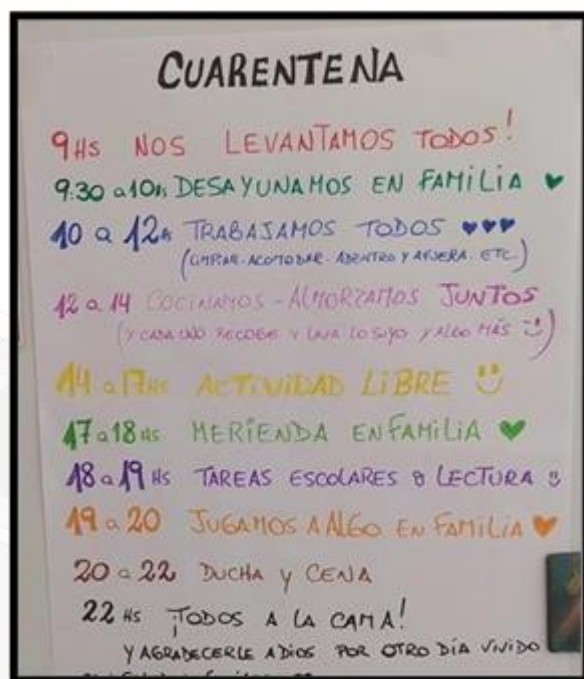 CUARENTENA
9HS NOS LEVANTAMOS TODOS!
9:30 a 10hs DESAYUNAMOS EN FAMILIA
10 a 12hs TRABAJAMOS TODOS
(LIMPIAR-ACOMODAR-ADENTRO Y AFUERA. ETC.)
12 a 14 COCINAMOS - ALMORZAMOS JUNTOS
(Y CADA UNO RECOGE Y LAVA LO SUYO Y ALGO MÁS)
14 a 17HS ACTIVIDAD LIBRE
17 a 18 HS MERIENDA EN FAMILIA
18 a 19 HS TAREAS ESCOLARES LECTURA
19 a 20 JUGAMOS A ALGO EN FAMILIA
20 a 22 DUCHA Y CENA
22 HS ¡TODOS A LA CAMA!
Y AGRADECERLE A DIOS POR OTRO DÍA VIVIDO